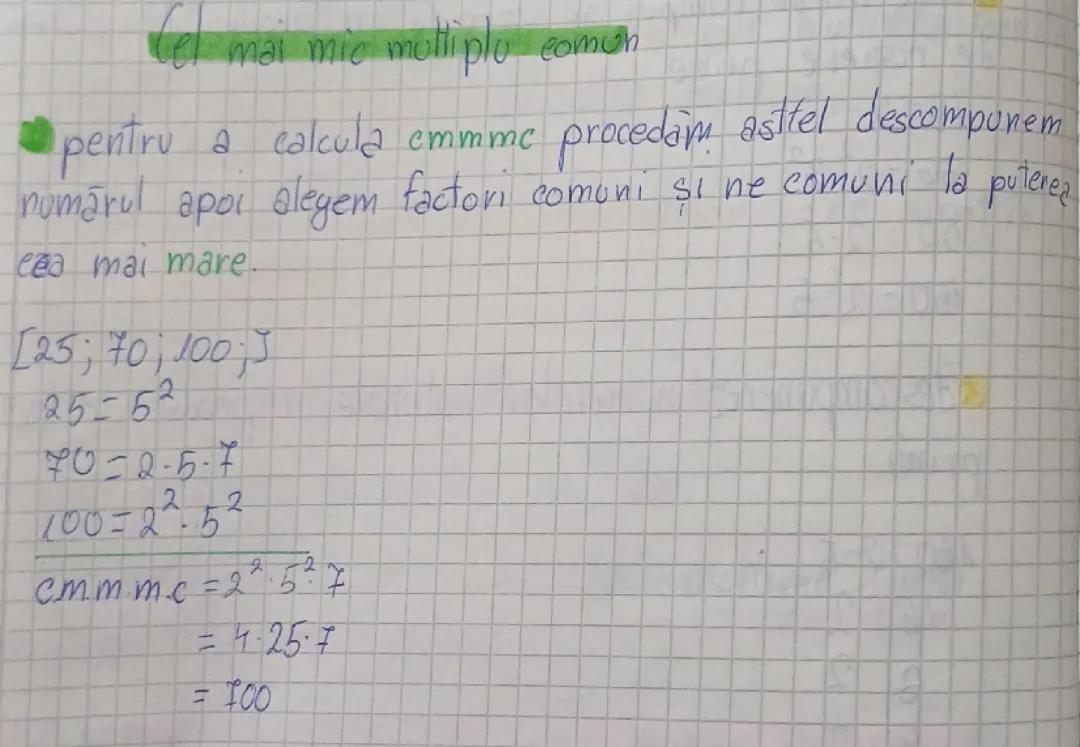 Cel mai mic multiplu comun
pentru a calcula cmmmc procedăm astfel descompunem
numărul apoi alegem factori comuni și ne comuni la puterea
cea mai mare.
[25; 70; 100;]
25 = 5²
70 = 2·5·7
100 = 2²·5²
c.m.m.m.c = 2²·5²·7
= 4·25·7
= 700